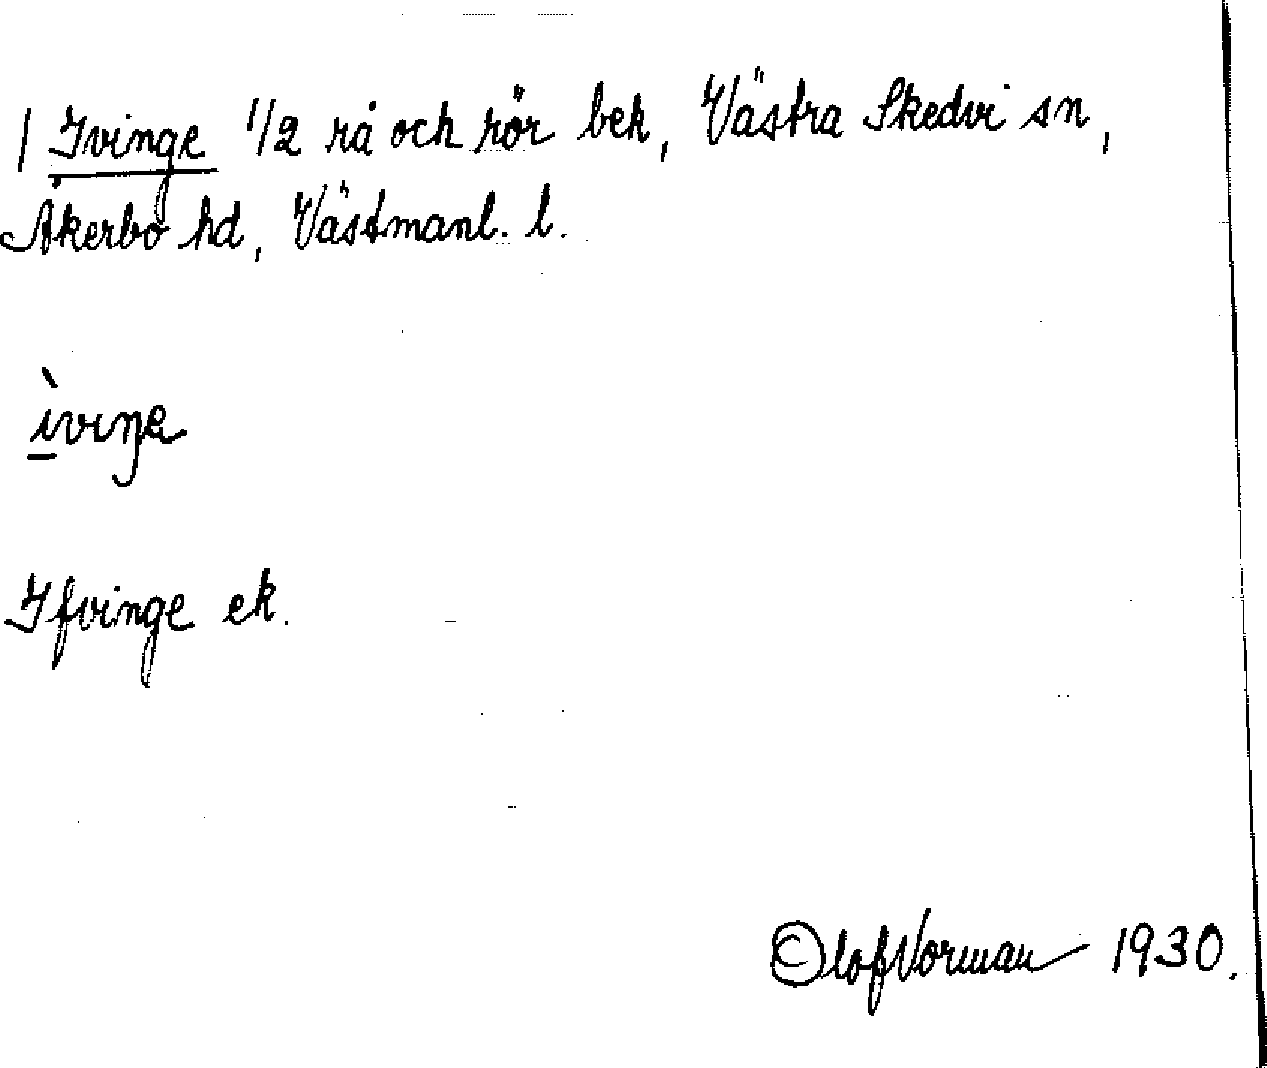 / Ivinge 1/2 rå och rör bek, Västra Skedvi sn,
Åkerbo hd, Västmanl. l.
ìviŋe
Ifvinge ek.
Olof Norman 1930.